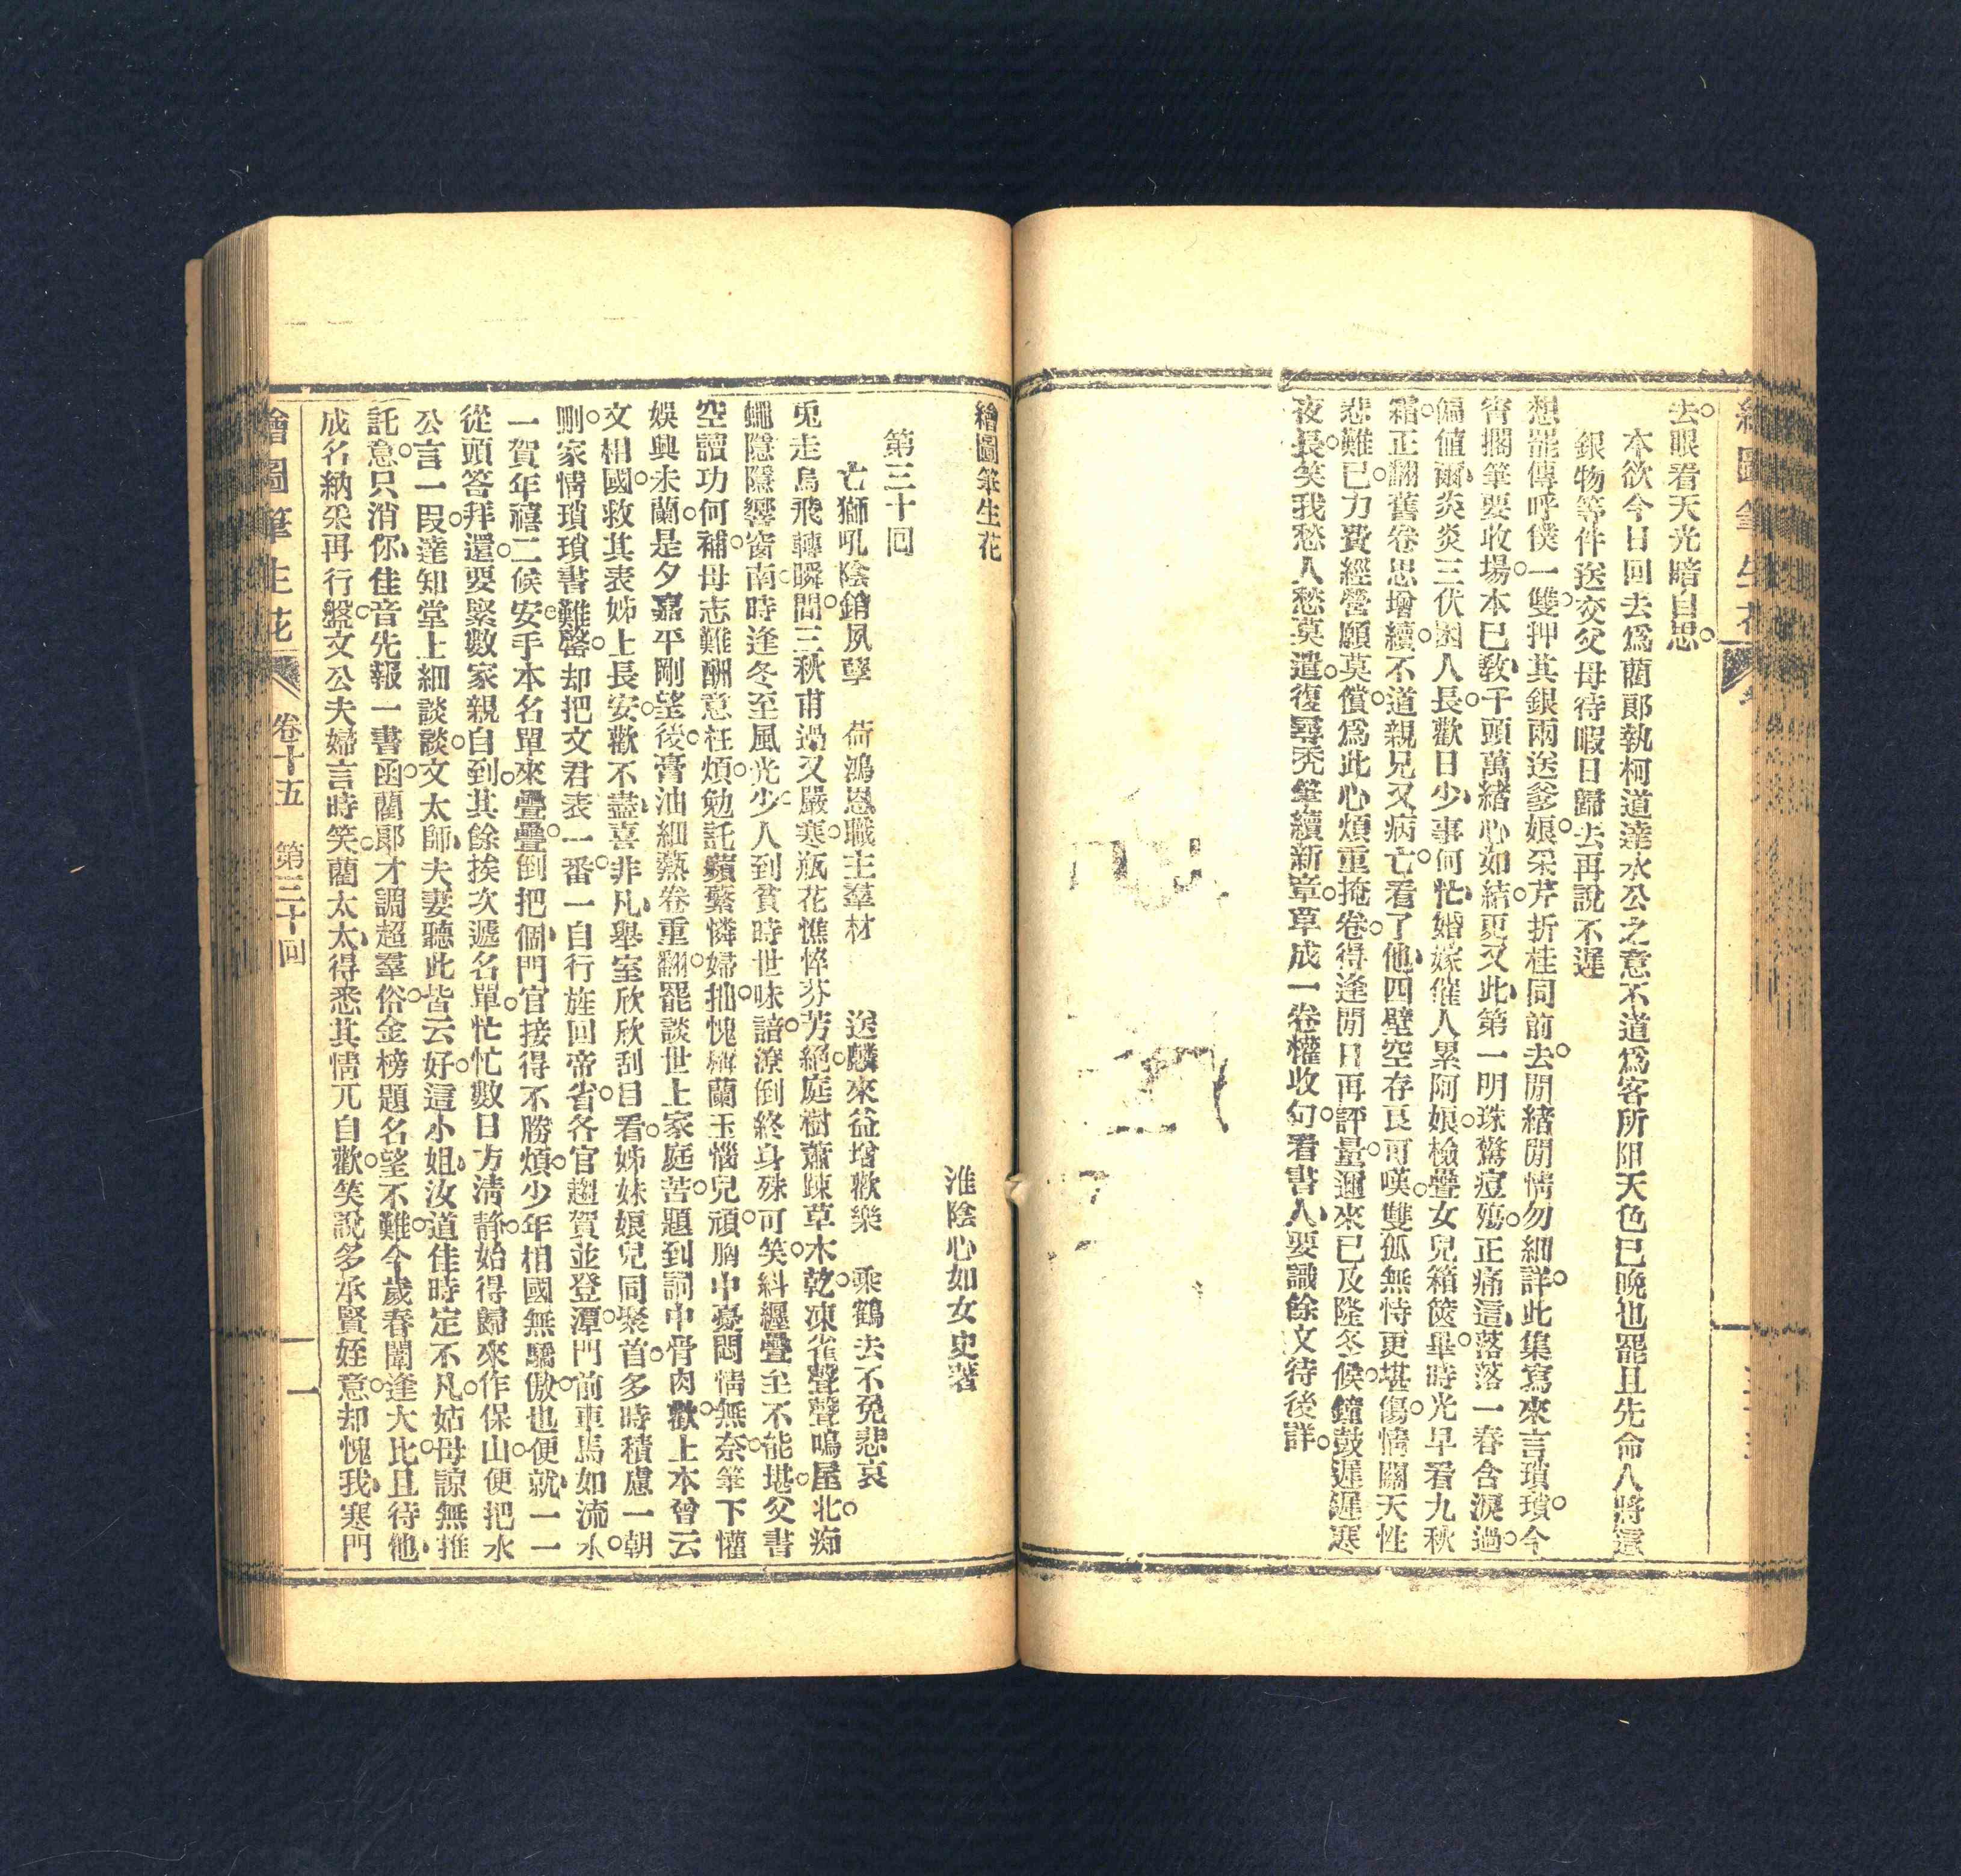 繪圖筆生花
去。眼看天光暗自思。
本欲今日回去爲藺郎執柯道達水公之意不道爲客所阻天色已晚也罷且先命人將這
銀物等件送交父母待暇日歸去再說不遲
想罷傳呼僕一雙。押其銀兩送爹娘。采芹折桂同前去。閒緒閒情勿細詳。此集寫來言瑣瑣。今
宵擱筆要收場。本已教千頭萬緒心如結。更又此第一明珠驚痘殤。正痛這落落一春含淚過。
偏値爾炎炎三伏困人長。歡日少事何忙婚嫁催人累阿娘。檢疊女兒箱篋畢。時光早看九秋
霜。正翻舊卷思增續。不道親兄又病亡。看了他四壁空存哀可嘆。雙孤無恃更堪傷。情關天性
悲難已。力費經營願莫償。爲此心煩重掩卷。得逢閒日再評量。邇來已及隆冬候。鐘鼓遲遲寒
夜長。笑我愁人愁莫遣。復尋禿筆續新章。草成一卷權收句。看書人要識餘文待後詳。
繪圖筆生花
淮陰心如女史著
第三十回
亡獅吼陰銷夙孽　荷鴻恩職主羣材　送麟來益增歡樂　乘鶴去不免悲哀
兎走烏飛轉瞬間。三秋甫過又嚴寒。瓶花憔悴芬芳絕。庭樹蕭疎草木乾。凍雀聲聲鳴屋北。痴
蠅隱隱響窗南。時逢冬至風光少。人到貧時世味諳。潦倒終身殊可笑。糾纏疊至不能堪。父書
空讀功何補。母志難酬意枉煩。勉託蘋蘩憐婦拙。愧稱蘭玉惱兒頑。胸中憂悶情無奈。筆下懽
娛興未蘭。是夕嘉平剛望後。膏油細爇卷重翻。罷談世上家庭苦。題到詞中骨肉歡。上本曾云
文相國。救其表姊上長安。歡不盡喜非凡舉室欣欣刮目看。姊妹娘兒同聚首。多時積慮一朝
刪。家情瑣瑣書難罄。却把文君表一番。一自行旌回帝省。各官趨賀並登潭。門前車馬如流水。
一賀年禧二候安。手本名單來疊疊。倒把個門官接得不勝煩。少年相國無驕傲。也便就一一
從頭答拜還。要緊數家親自到。其餘挨次遞名單。忙忙數日方清靜。始得歸來作保山。便把水
公言一叚。達知堂上細談談。文太師夫妻聽此皆云好。這小姐汝道佳時定不凡。姑母諒無推
託意。只消你佳音先報一書函。藺郎才調超羣俗。金榜題名望不難。今歲春闈逢大比。且待他
成名納采再行盤。文公夫婦言時笑。藺太太得悉其情兀自歡。笑說多承賢姪意。却愧我寒門
繪圖筆生花　卷十五　第三十回　一